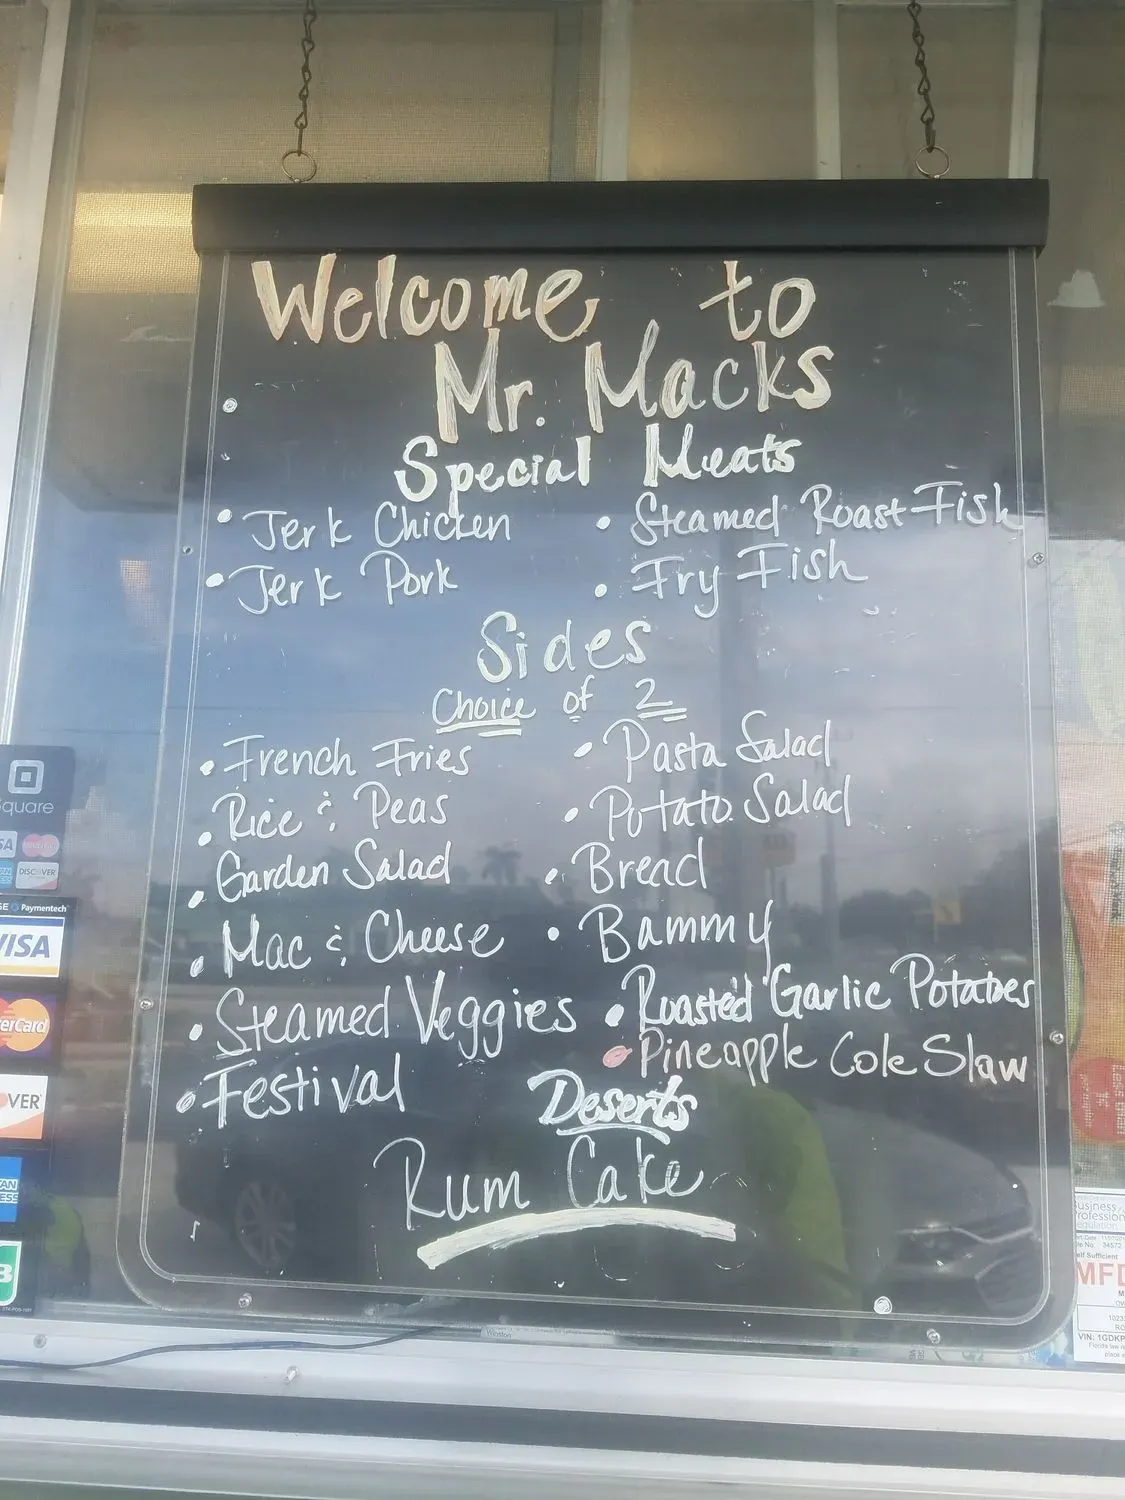 Welcome to
Mr. Macks
Special Meats
• Jerk Chicken
• Jerk Pork
• Steamed Roast Fish
• Fry Fish
Sides
Choice of 2
• French Fries
• Rice & Peas
• Garden Salad
• Mac & Cheese
• Steamed Veggies
• Festival
• Pasta Salad
• Potato Salad
• Bread
• Bammy
• Roasted Garlic Potatoes
• Pineapple Cole Slaw
Deserts
Rum Cake
Square
DISCOVER
Paymentech
VISA
Winston
34572
Self Sufficient
MFD
VIN: 1GDKP